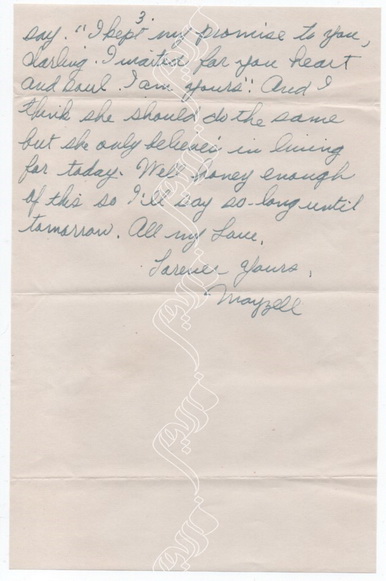 3
say. "I kept my promise to you,
darling. I waited for you heart
and soul. I am yours". And I
think she should do the same
but she only believes in living
for today. Well honey enough
of this so I'll say so-long until
tomorrow. All my Love,
Forever Yours,
Mayzell